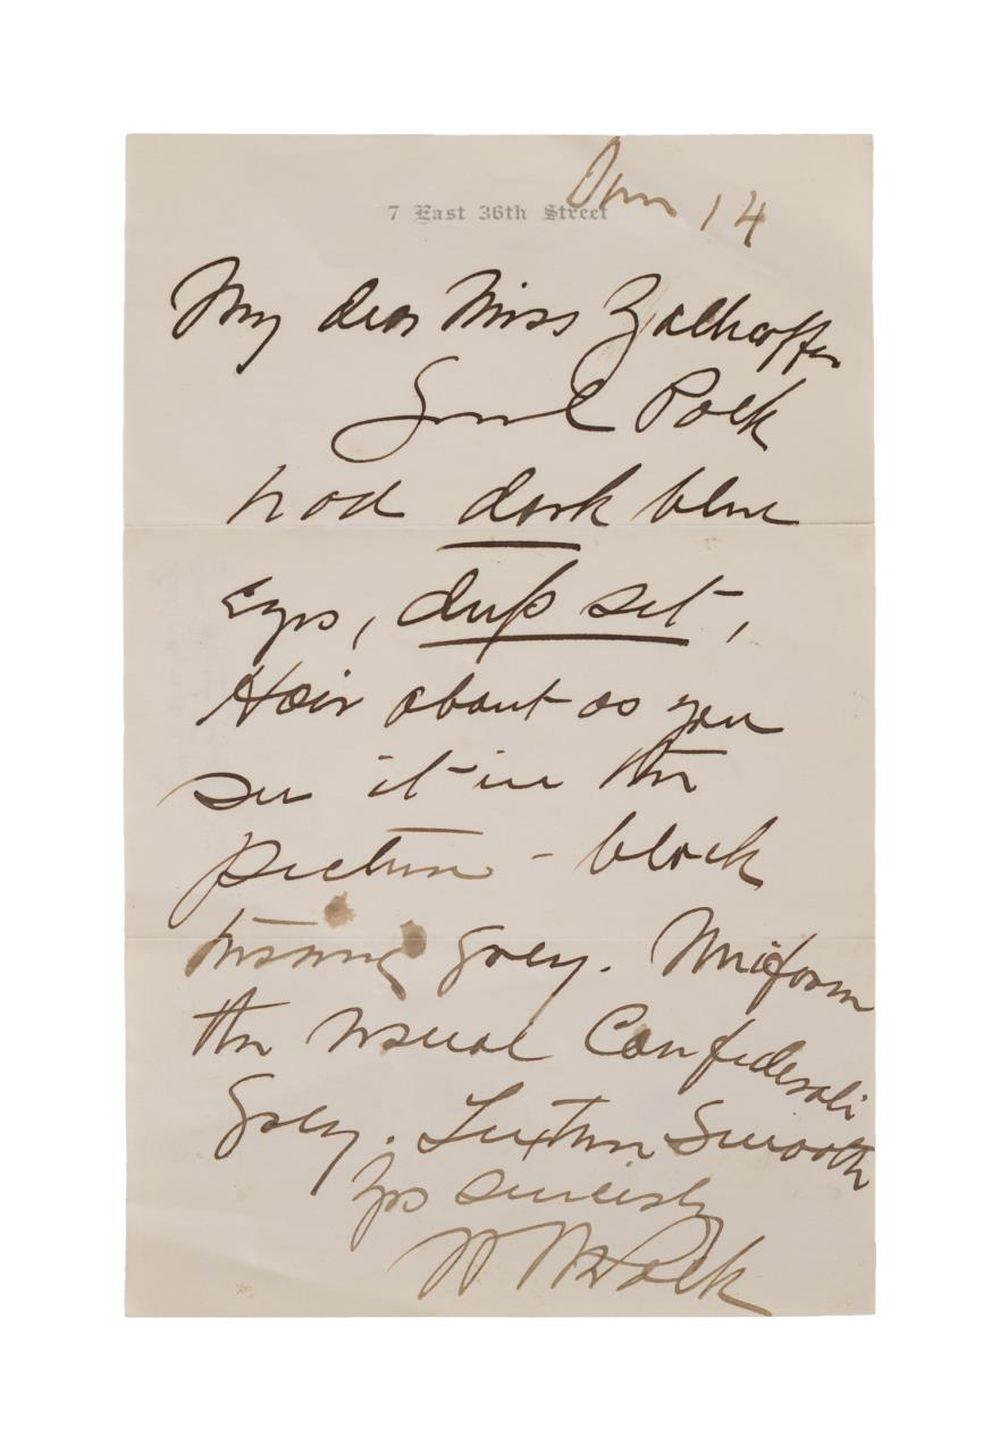 7 East 36th Street
Jan 14
My dear Miss Zalhoffer
Genl Polk
had dark blue
Eyes, deep set,
Hair about as you
see it in the
picture - black
turning grey. Uniform
the usual Confederate
Grey. Texture Smooth
Yrs sincerely
W M Polk